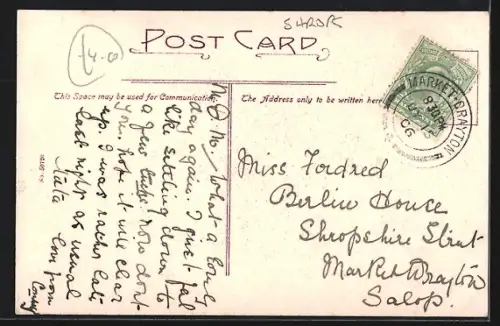 SHROPS
£4.0
POST CARD
This Space may be used for Communication
The Address only to be written here
MARKET-DRAYTON
06
What a lovely
day again. I just feel
like settling down to
a few now dont
you hope it will clear
up. I was rather late
last night as usual
Ta ta
Love from
Miss Fordred
Berlin House
Shropshire Street
Market Drayton
Salop.